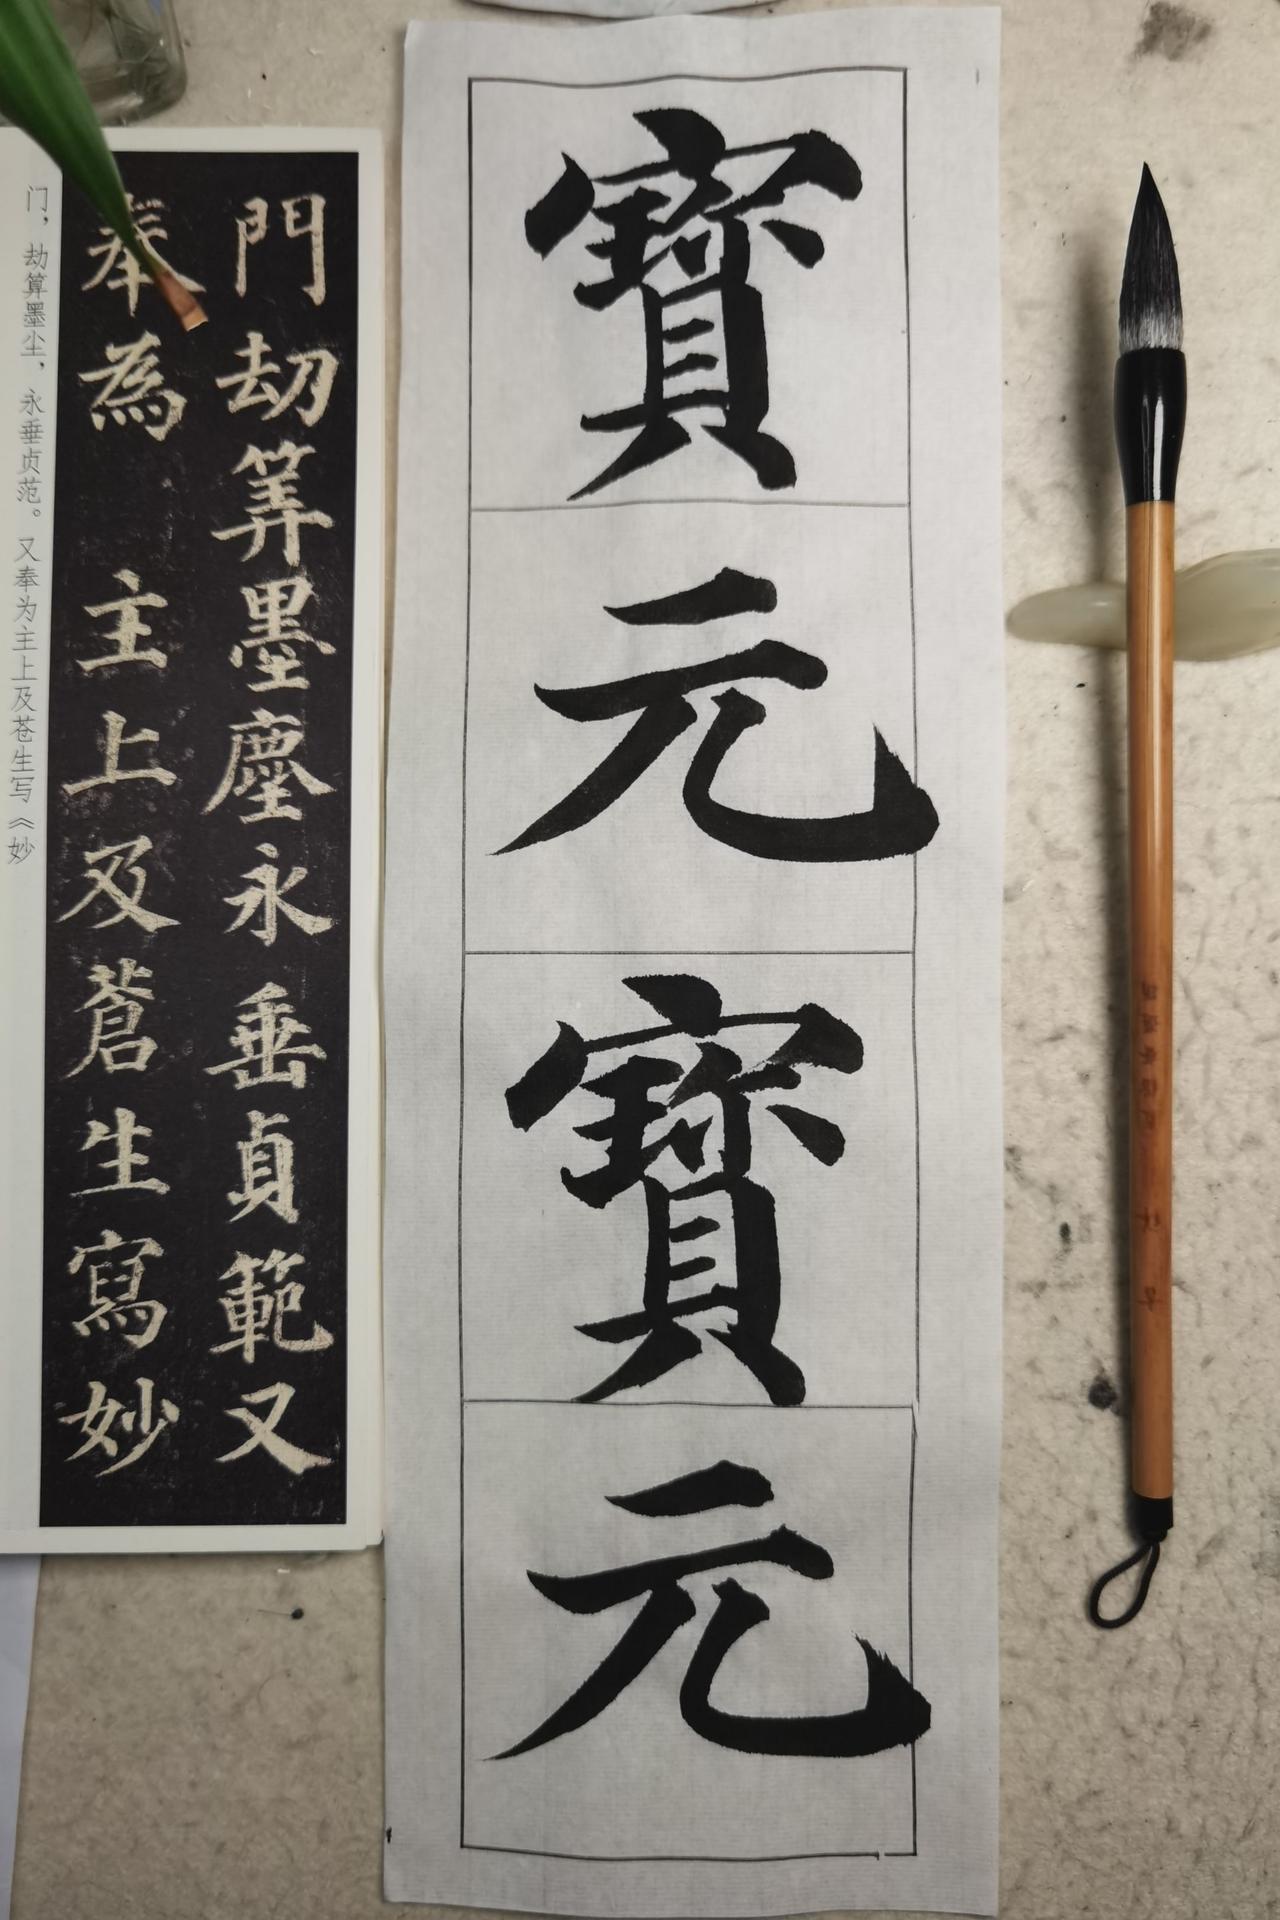 寶元寶元
門劫筭墨塵永垂貞範又
奉為 主上及蒼生寫妙
门，劫算墨尘，永垂贞范。又奉为主上及苍生写《妙